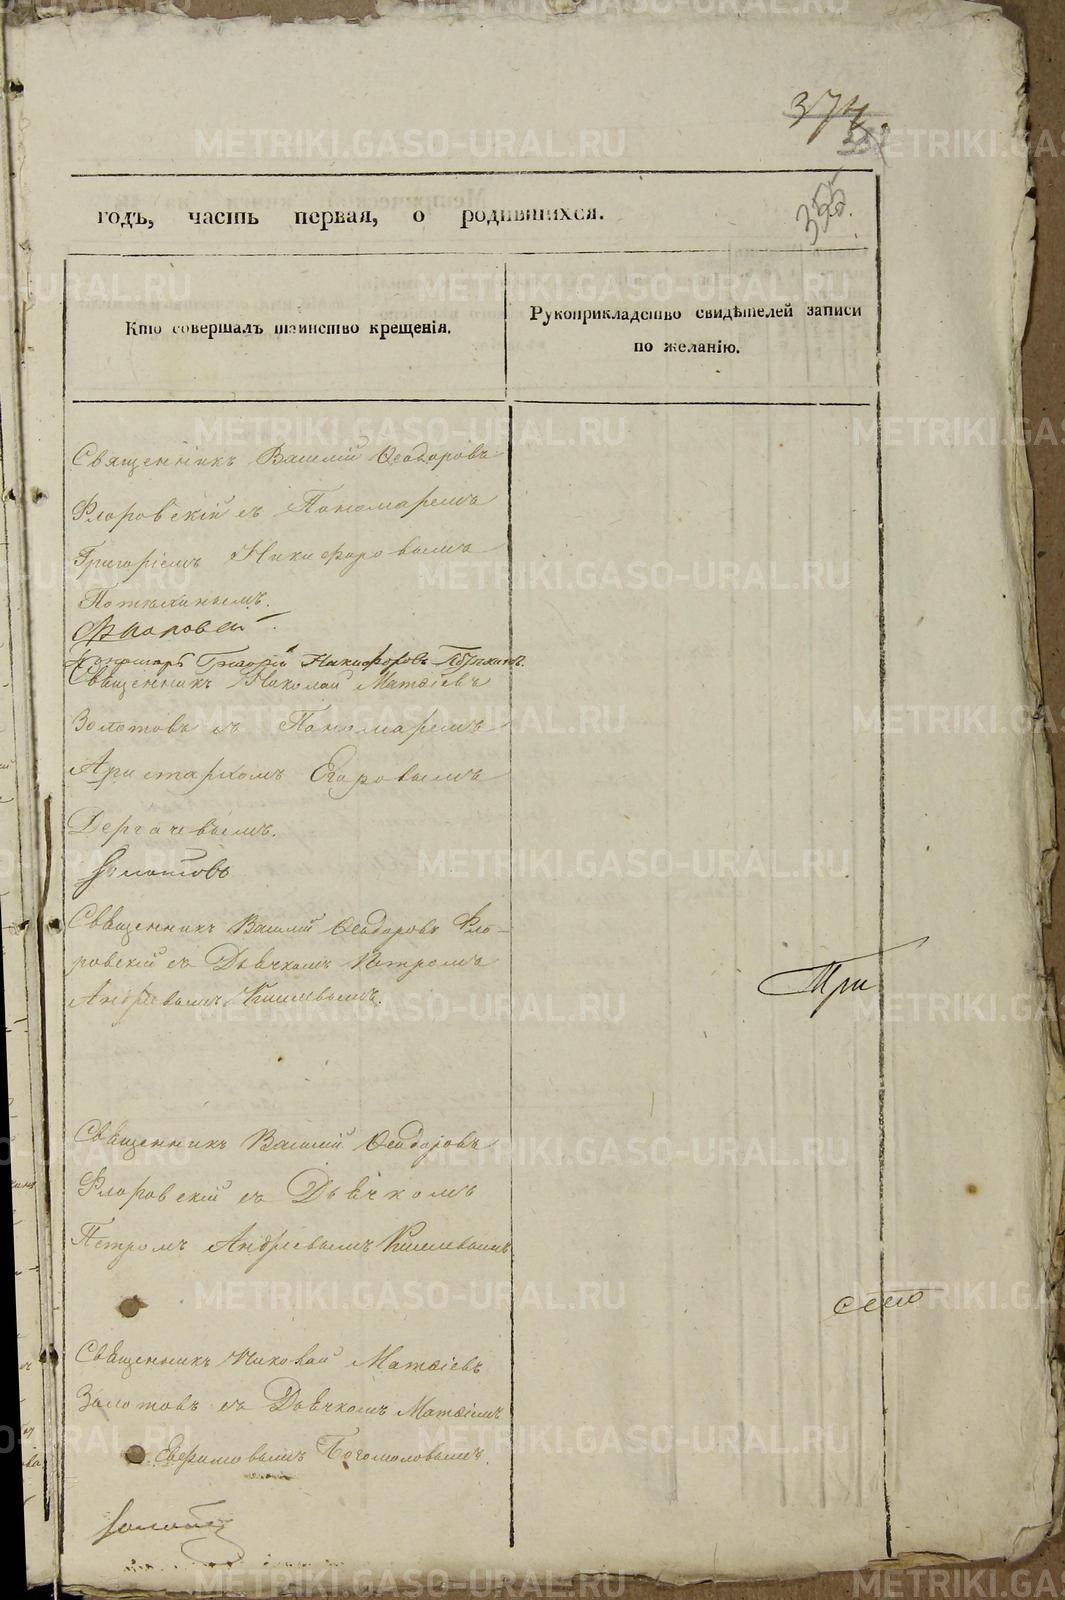 374
355.
годъ, часть первая, о родившихся.
Кто совершалъ таинство крещенія.
Рукоприкладство свидѣтелей записи
по желанію.
Священникъ Василій Ѳеодоровъ
Флоровскій съ Пономаремъ
Григоріемъ Никифоровымъ
Потѣхинымъ.
Флоровскій
Пономарь Григорій Никифоровъ
Священникъ Николай Матѳіевъ
Золотовъ съ Пономаремъ
Аристархомъ Егоровымъ
Дергачевымъ.
Золотовъ
Священникъ Василій Ѳеодоровъ Фло-
ровскій съ Дьячкомъ Петромъ
Андріевымъ Киселевымъ.
Три
Священникъ Василій Ѳеодоровъ
Флоровскій съ Дьячкомъ
Петромъ Андріевымъ Киселевымъ
сто
Священникъ Николай Матѳіевъ
Золотовъ съ Дьячкомъ Матѳіемъ
Евфимовымъ Богомоловымъ.
Золотовъ
METRIKI.GASO-URAL.RU